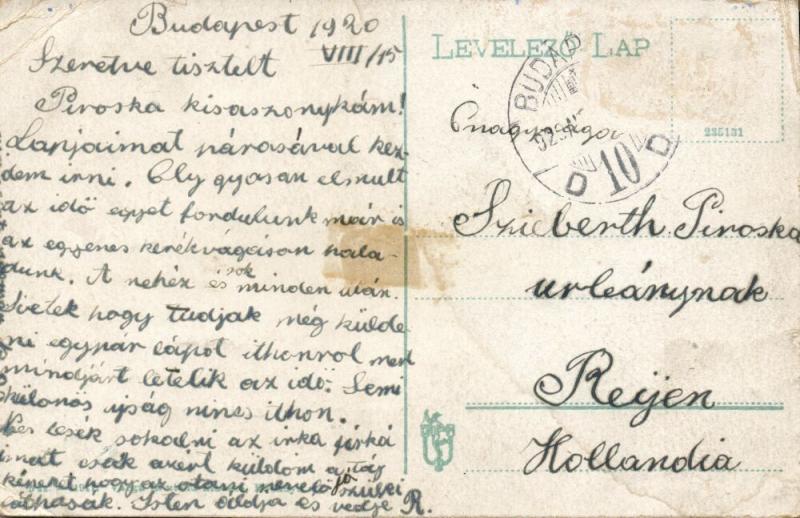 Budapest 1920
VIII/15
Szeretve tisztelt
Piroska kisaszonykám!
Lapjaimat párosával kez-
dem irni. Oly gyosan elmult
az idő egyet fordulunk már is
az egyenes kerékvágáson hala-
dunk. A nehéz és sok minden után.
hogy tudjak még külde
ni egypár lápot ithonrol mert
mindjárt letelik az idő. Semi
különös ujság nincs ithon.
sokalni az irka firká
mat csak azért küldöm a
képeket hogy az otani nevelő jó szülei
láthasák. Isten áldja és védje R.
LEVELEZŐ LAP
BUDA
10
D D
235131
Szieberth Piroska
urleánynak
Reijen
Hollandia